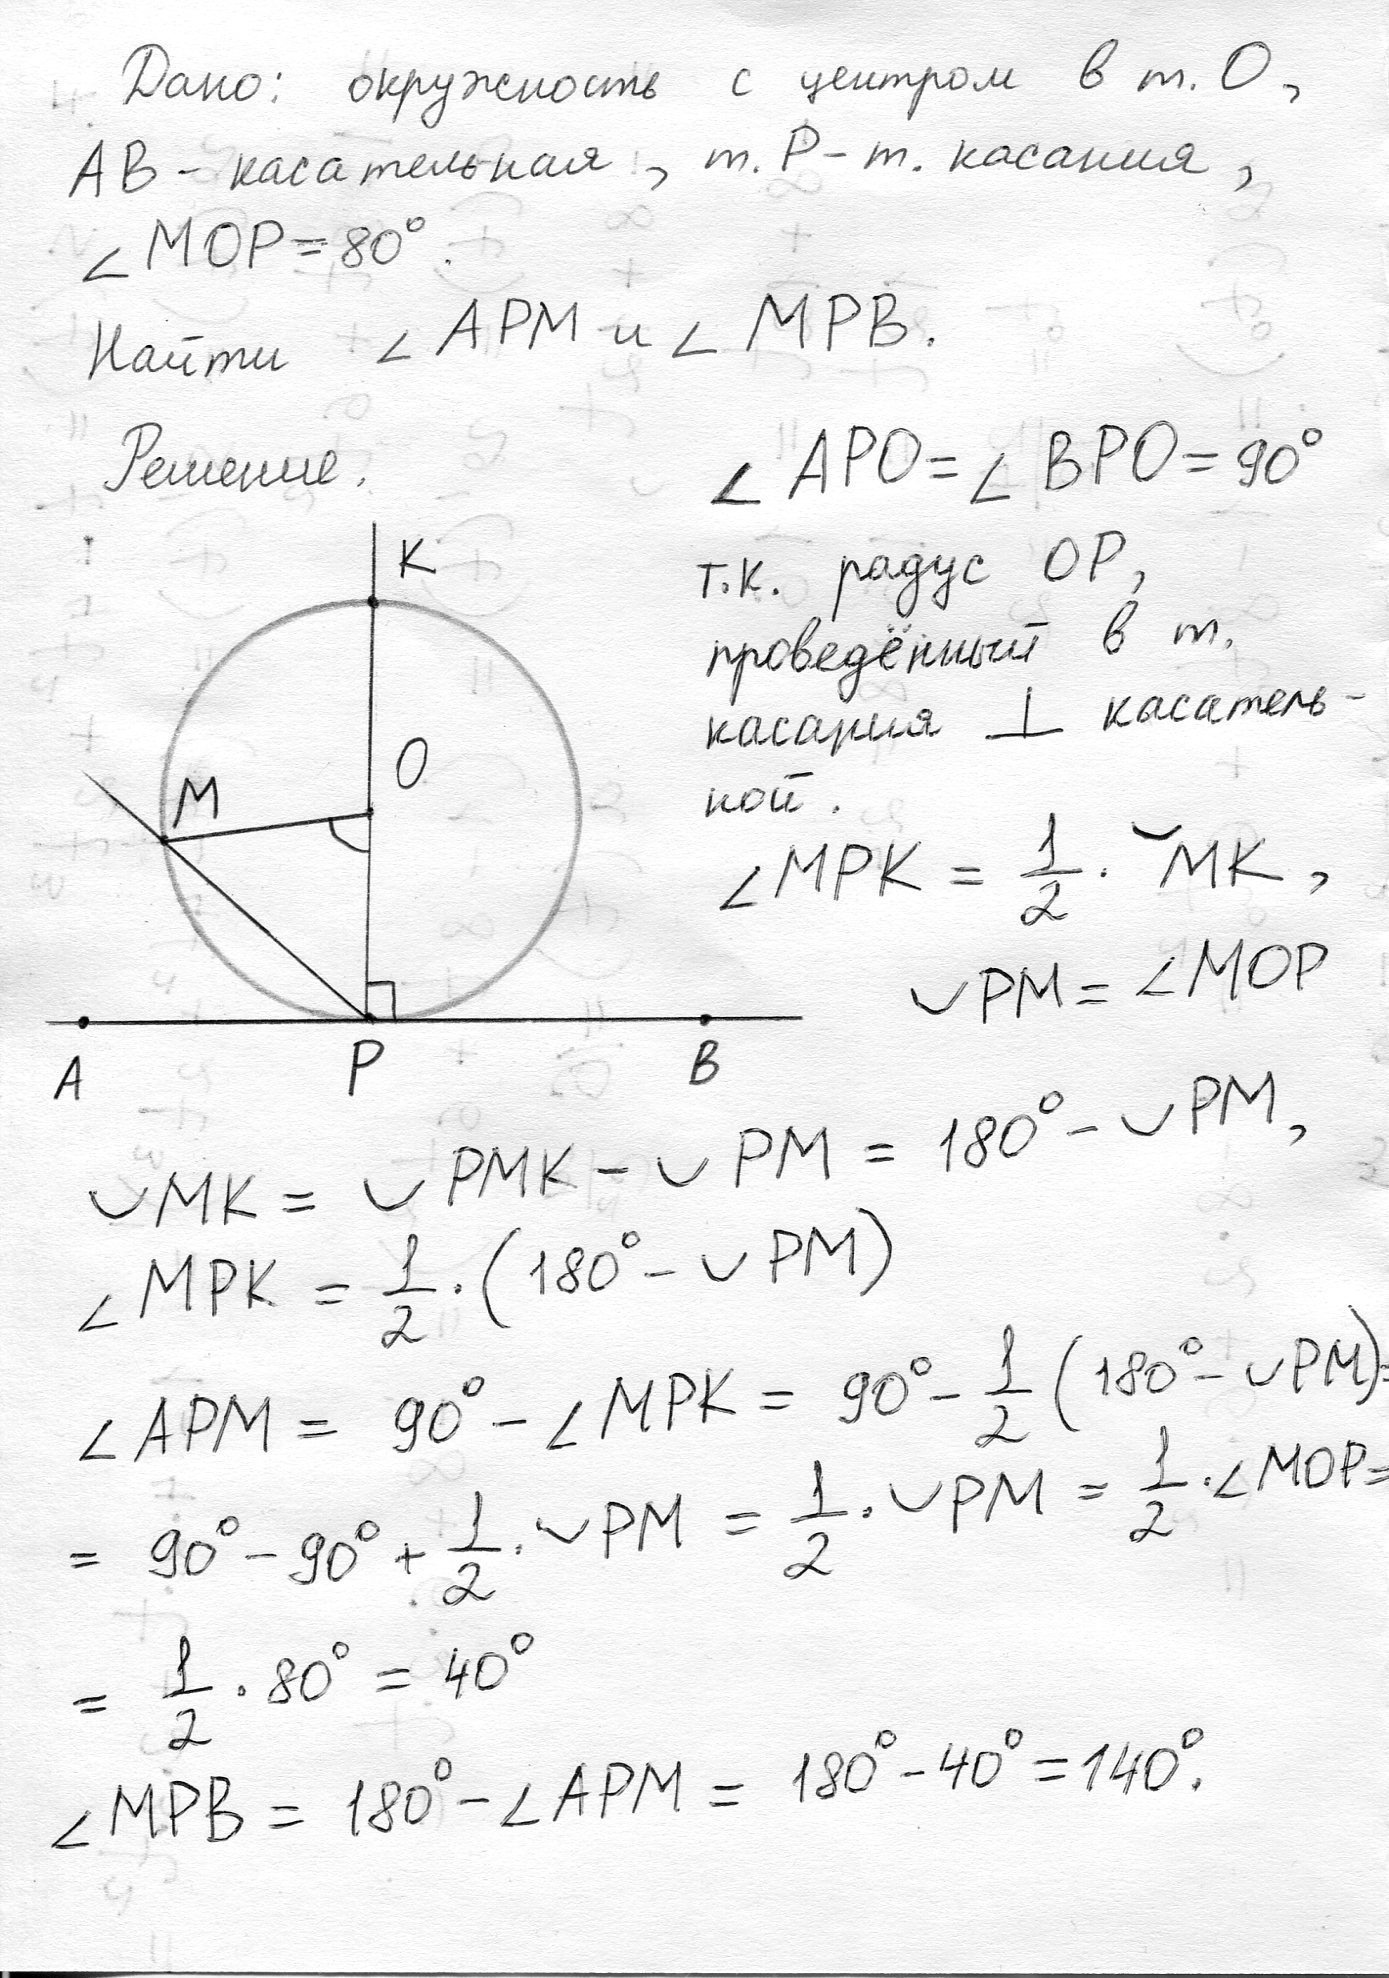 Дано: окружность с центром в т. О,
АВ – касательная, т. Р – т. касания,
∠MOP = 80°.
Найти ∠APM и ∠MPB.
Решение.
∠APO = ∠BPO = 90°
т.к. радус OP,
проведённый в т.
касания ⊥ касатель-
ной.
K
O
M
A P B
∠MPK = 1/2 · ◡MK,
◡PM = ∠MOP
◡MK = ◡PMK – ◡PM = 180° – ◡PM,
∠MPK = 1/2 · (180° – ◡PM)
∠APM = 90° – ∠MPK = 90° – 1/2 (180° – ◡PM) =
= 90° – 90° + 1/2 · ◡PM = 1/2 · ◡PM = 1/2 · ∠MOP =
= 1/2 · 80° = 40°
∠MPB = 180° – ∠APM = 180° – 40° = 140°.